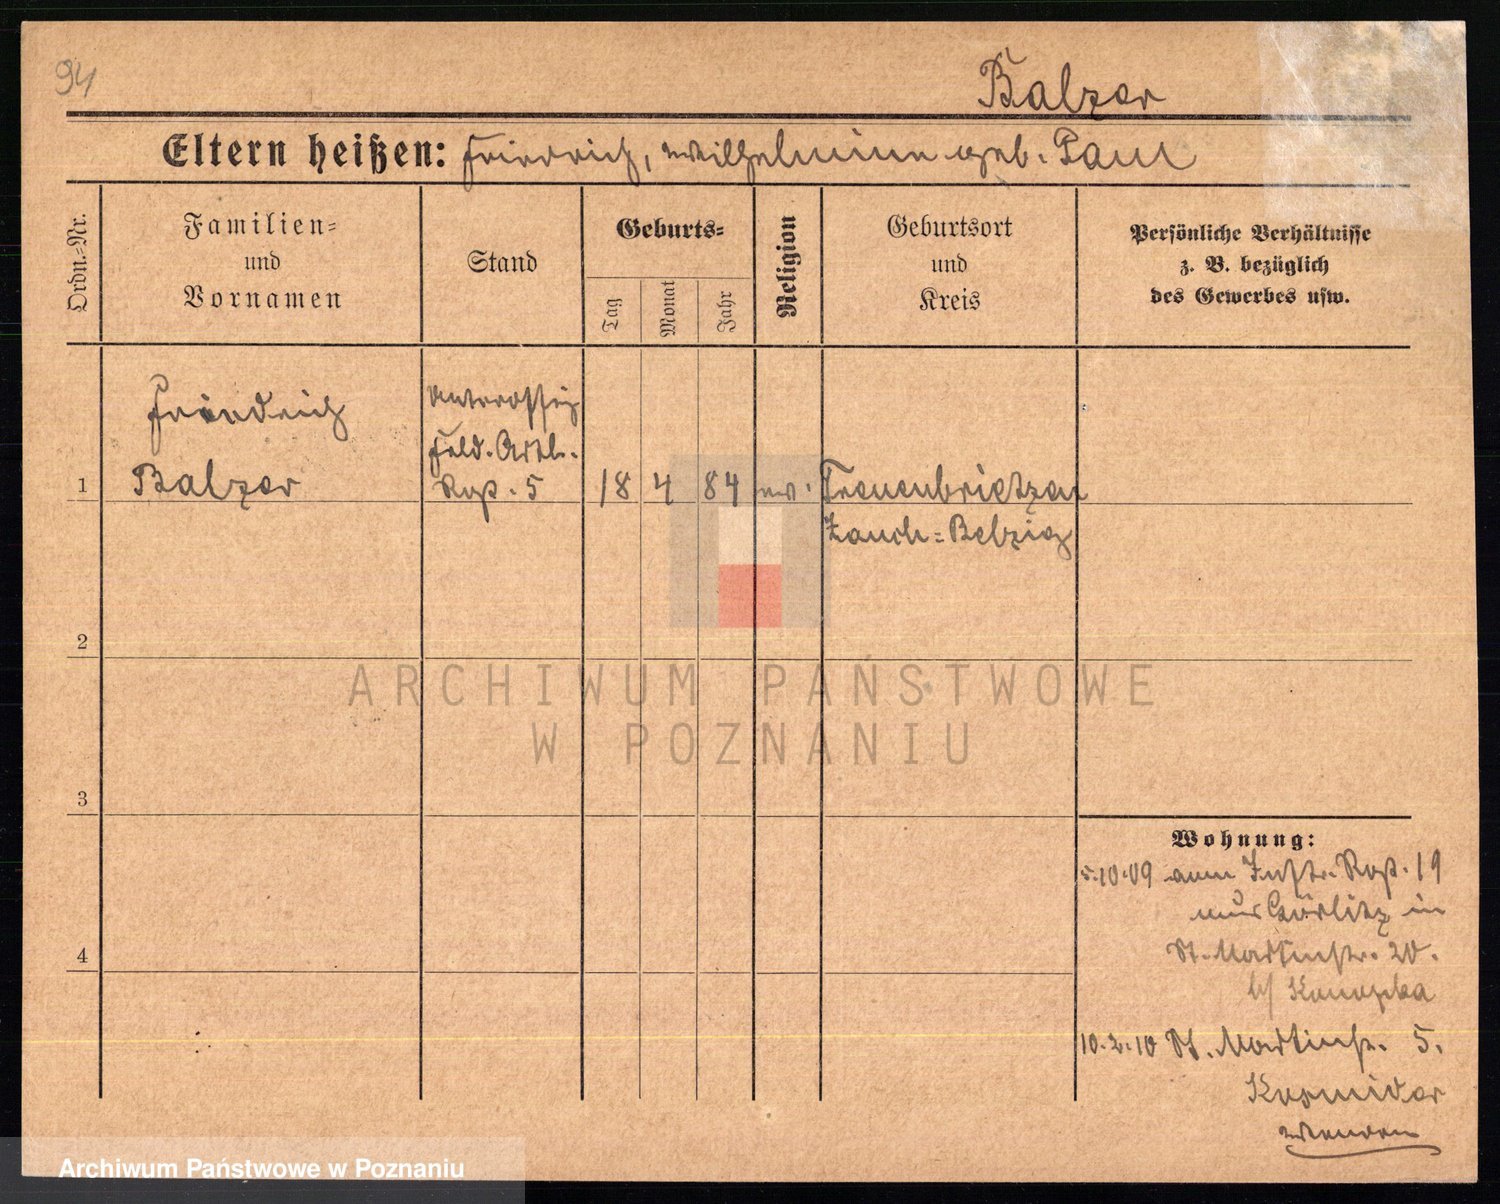 94
Balzer
Eltern heißen: Friedrich, Wilhelmine geb. Paul
Ordn.=Nr.
Familien=
und
Vornamen
Stand
Geburts=
Tag
Monat
Jahr
Religion
Geburtsort
und
Kreis
Persönliche Verhältnisse
z. B. bezüglich
des Gewerbes usw.
Friedrich
Balzer
Unteroffiz
Feld. Artl.
Reg. 5
1
18
4
84
ev.
Treuenbrietzen
Zauch=Belzig
2
3
4
Wohnung:
5.10.09 vom Inftr. Reg. 19
aus Görlitz in
St. Martinstr. 20.
b/ Konopka
10.2.10 St. Martinstr. 5.
Wenden
ARCHIWUM PAŃSTWOWE
W POZNANIU
Archiwum Państwowe w Poznaniu